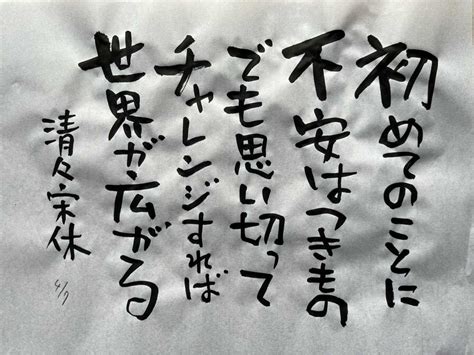 初めてのことに
不安はつきもの
でも思い切って
チャレンジすれば
世界が広がる
清々宋休
4/7